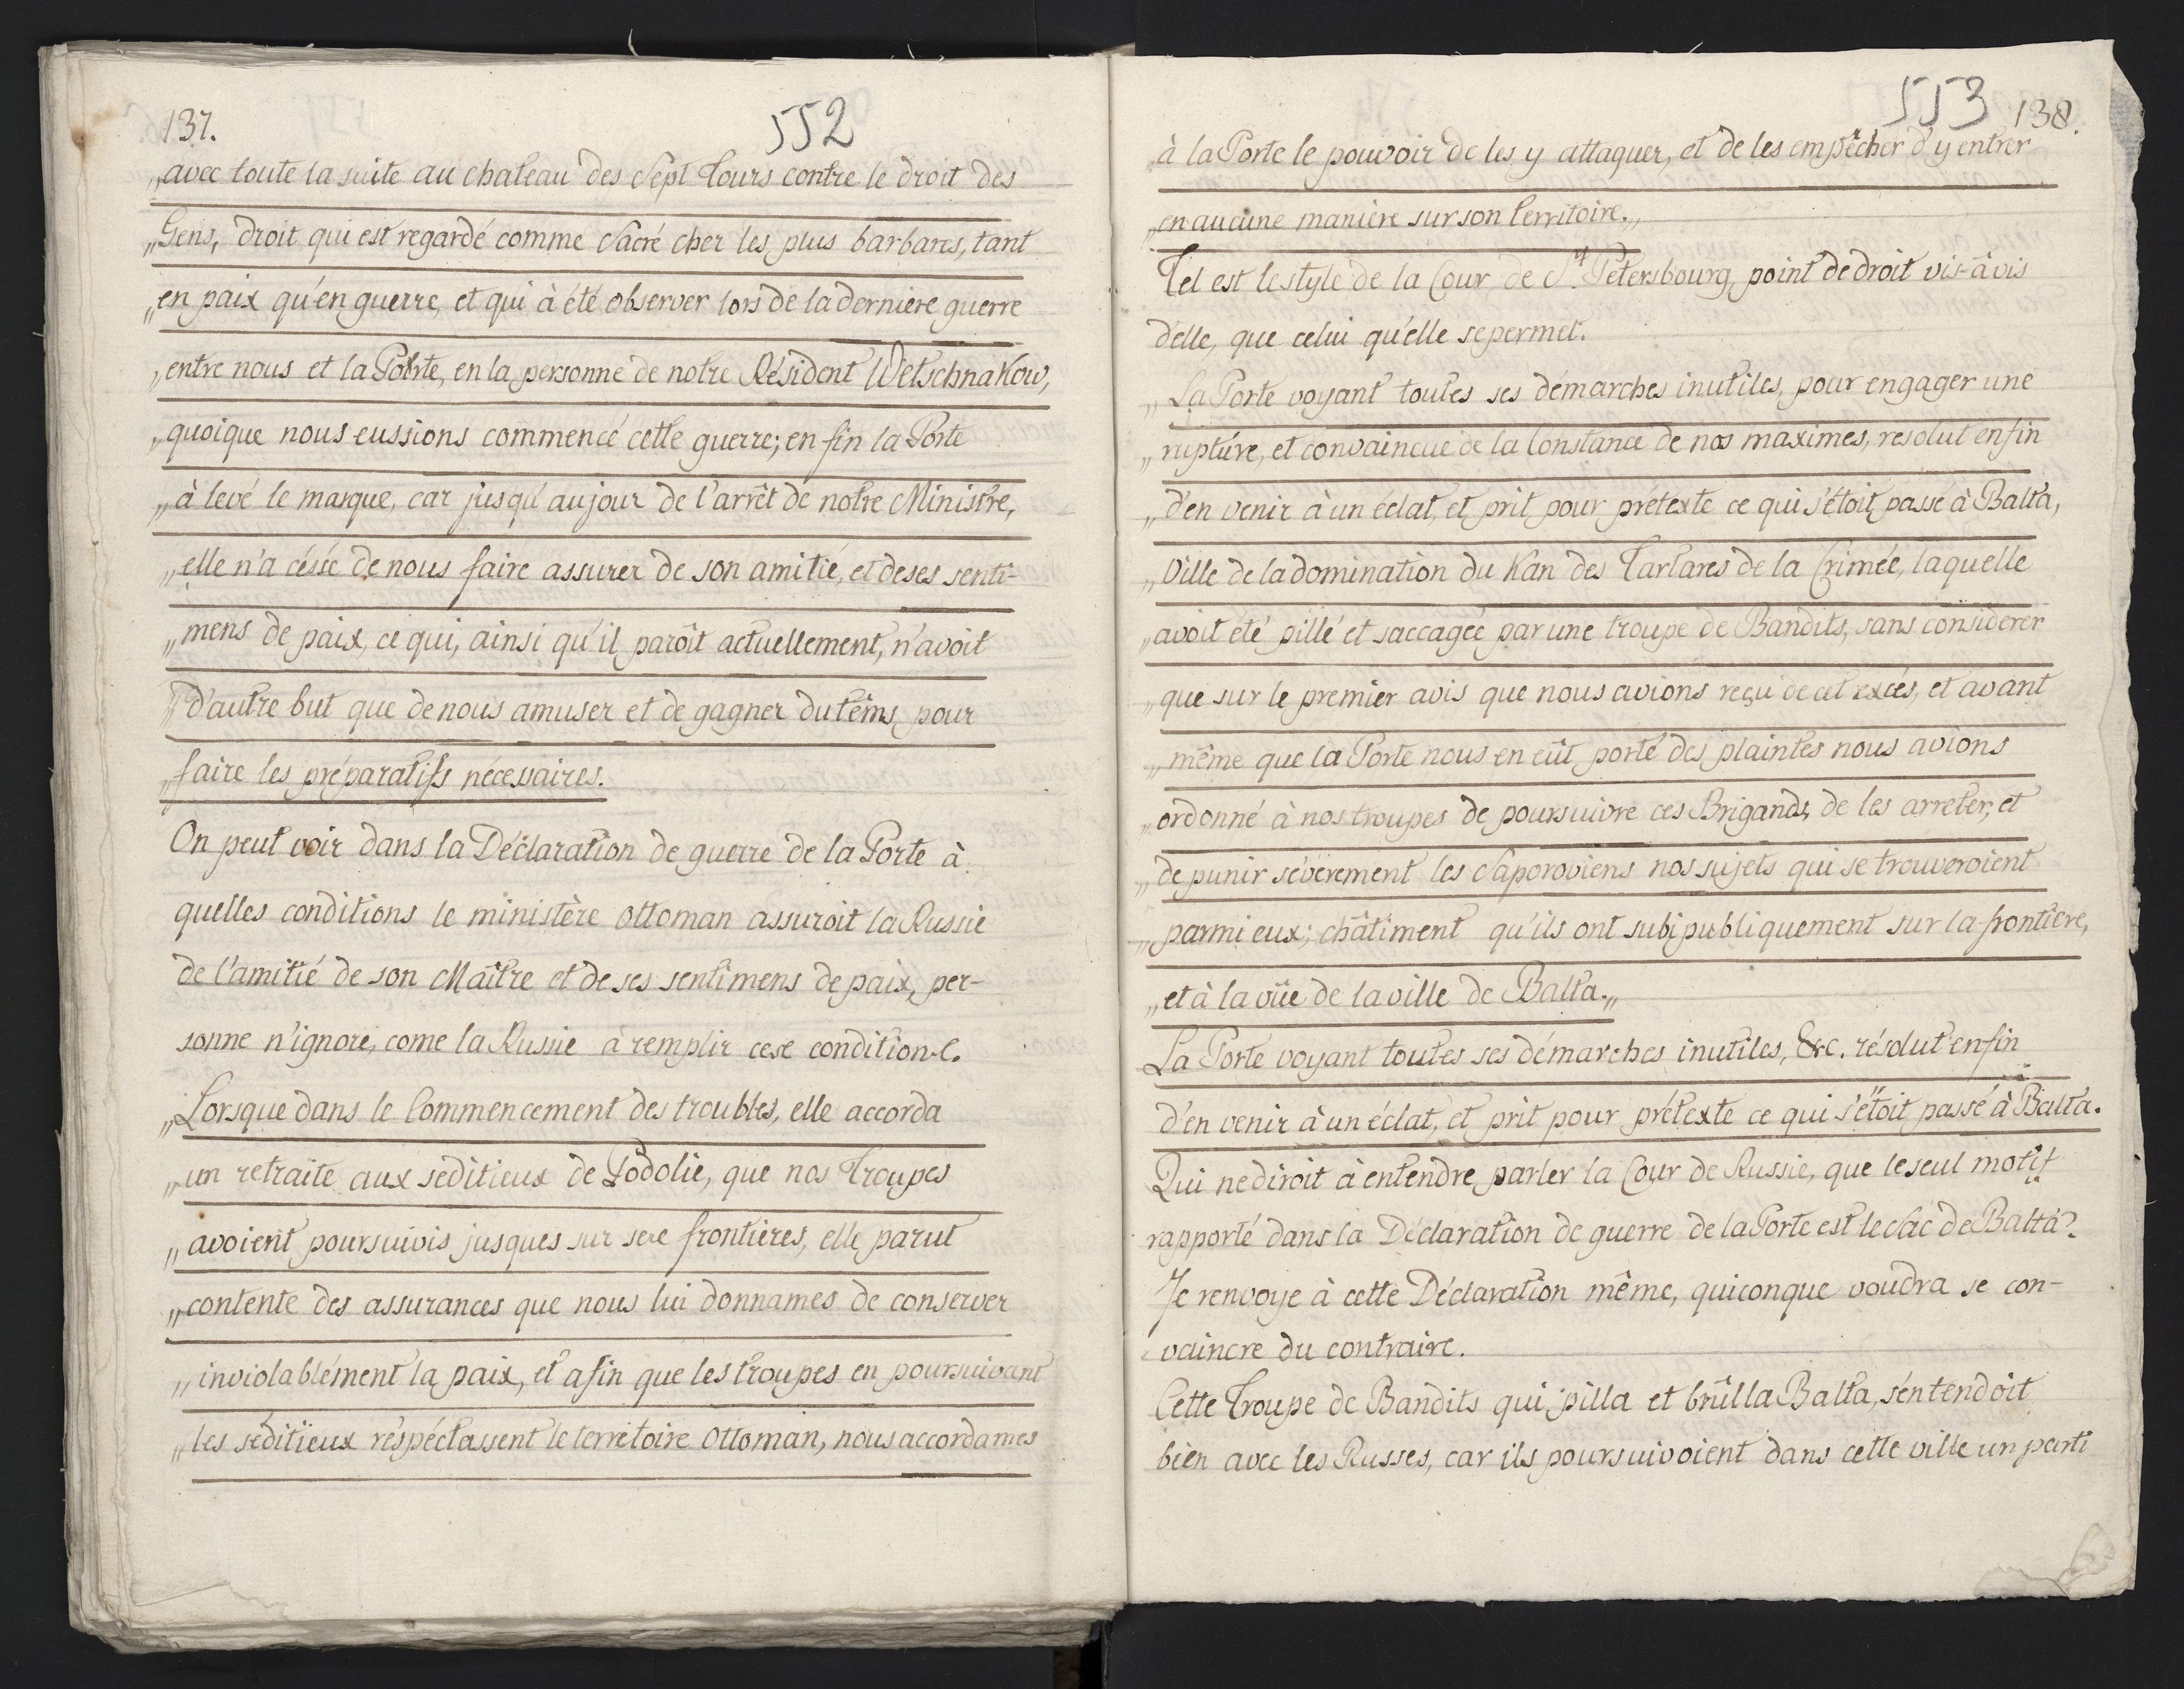 137.
552
„avec toute la suite au chateau des Sept Tours contre le droit des
„Gens, droit qui est regardé comme Sacré cher les plus barbares, tant
„en paix qu'en guerre, et qui à été observer lors de la derniere guerre
„entre nous et la Porte, en la personne de notre Résident Wetschnakow,
„quoique nous eussions commencé cette guerre; en fin la Porte
„à levé le marque, car jusqu'au jour de l'arrêt de notre Ministre,
„elle n'a céssé de nous faire assurer de son amitié, et de ses senti-
„mens de paix, ce qui, ainsi qu'il paroît actuellement, n'avoit
„d'autre but que de nous amuser et de gagner du tems, pour
„faire les préparatifs nécessaires.
On peut voir dans la Déclaration de guerre de la Porte à
quelles conditions le ministère Ottoman assuroit la Russie
de l'amitié de son Maître et de ses sentimens de paix, per-
sonne n'ignore, come la Russie à remplir cese condition-l.
„Lorsque dans le Commencement des troubles, elle accorda
„un retraite aux seditieux de Podolie, que nos Troupes
„avoient poursuivis jusques sur sese frontières, elle parut
„contente des assurances que nous lui donnames de conserver
„inviolablément la paix, et afin que les troupes en poursuivant
„les séditieux respéctassent le territoire Ottoman, nous accordames
553
138.
„à la Porte le pouvoir de les y attaquer, et de les empêcher d'y entrer
„en aucune manière sur son Territoire.„
Tel est le style de la Cour de St. Petersbourg, point de droit vis-à vis
d'elle, que celui qu'elle se permet.
„La Porte voyant toutes ses démarches inutiles, pour engager une
„rupture, et convaincue de la Constance de nos maximes, resolut enfin
„d'en venir à un éclat, et prit pour prétexte ce qui s'étoit passé à Balta,
„Ville de la domination du Kan des Tartares de la Crimée, laquelle
„avoit été pillé et saccagée par une troupe de Bandits, sans considerer
„que sur le premier avis que nous avions reçu de cet excés, et avant
„même que la Porte nous en eût porté des plaintes nous avions
„ordonné à nos troupes de poursuivre ces Brigands, de les arreter, et
„de punir sévèrement les Saporoviens nos sujets qui se trouveroient
„parmi eux; châtiment qu'ils ont subi publiquement sur la frontiere,
„et à la vüe de la ville de Balta.„
La Porte voyant toutes ses démarches inutiles, &c. résolut enfin
d'en venir à un éclat, et prit pour prétexte ce qui s'étoit passé à Balta.
Qui ne diroit à entendre parler la Cour de Russie, que le seul motif
rapporté dans la Déclaration de guerre de la Porte est le Sac de Balta?
Je renvoye à cette Déclaration même, quiconque voudra se con-
vaincre du contraire.
Cette Troupe de Bandits qui pilla et brûlla Balta, s'entendoit
bien avec les Russes, car ils poursuivoient dans cette ville un parti